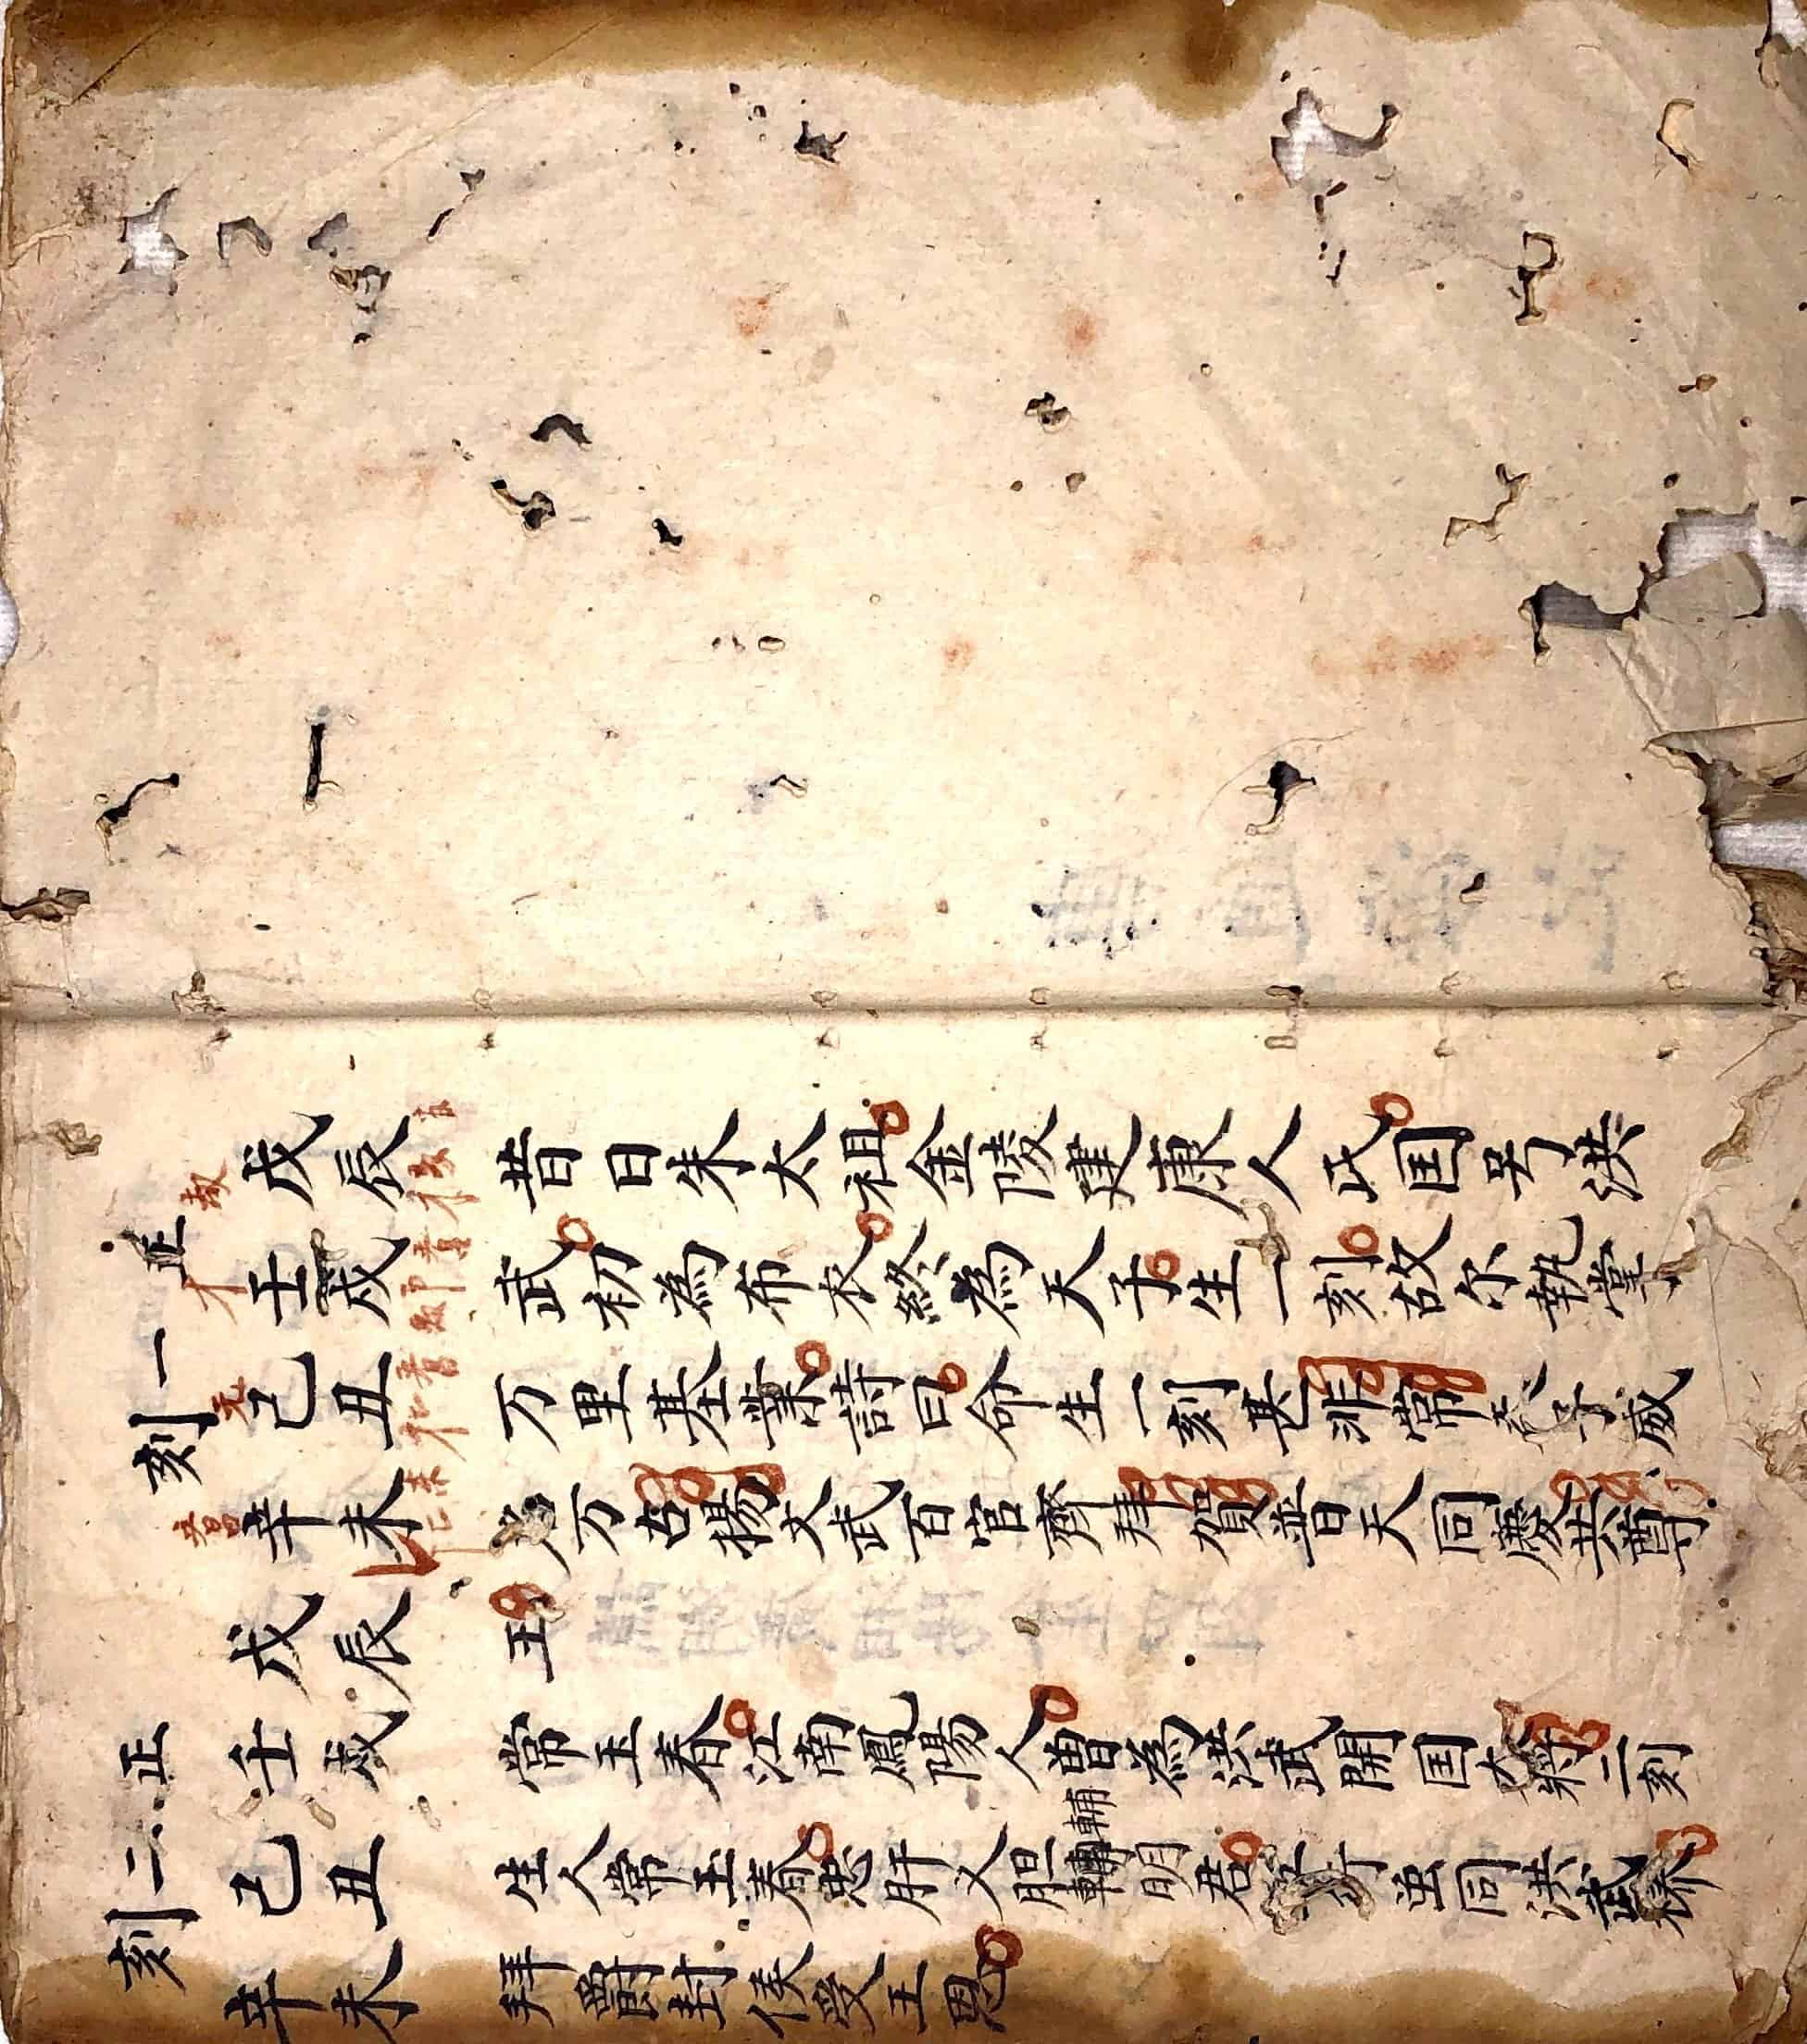 正一刻
戊辰
壬戌
己丑
辛未
昔日朱太祖金陵建康人氏国号洪
武初為布衣終為天子生一刻故尔執掌
万里基業詩曰命生一刻甚非常天子威
万古揚文武百官齊拜賀普天同慶共尊
王
正二刻
戊辰
壬戌
己丑
辛未
常玉春江南鳳陽人曽為洪武開国大將二刻
生人常玉春忠肝义胆輔明君虽同洪武
拜爵封侯受王恩